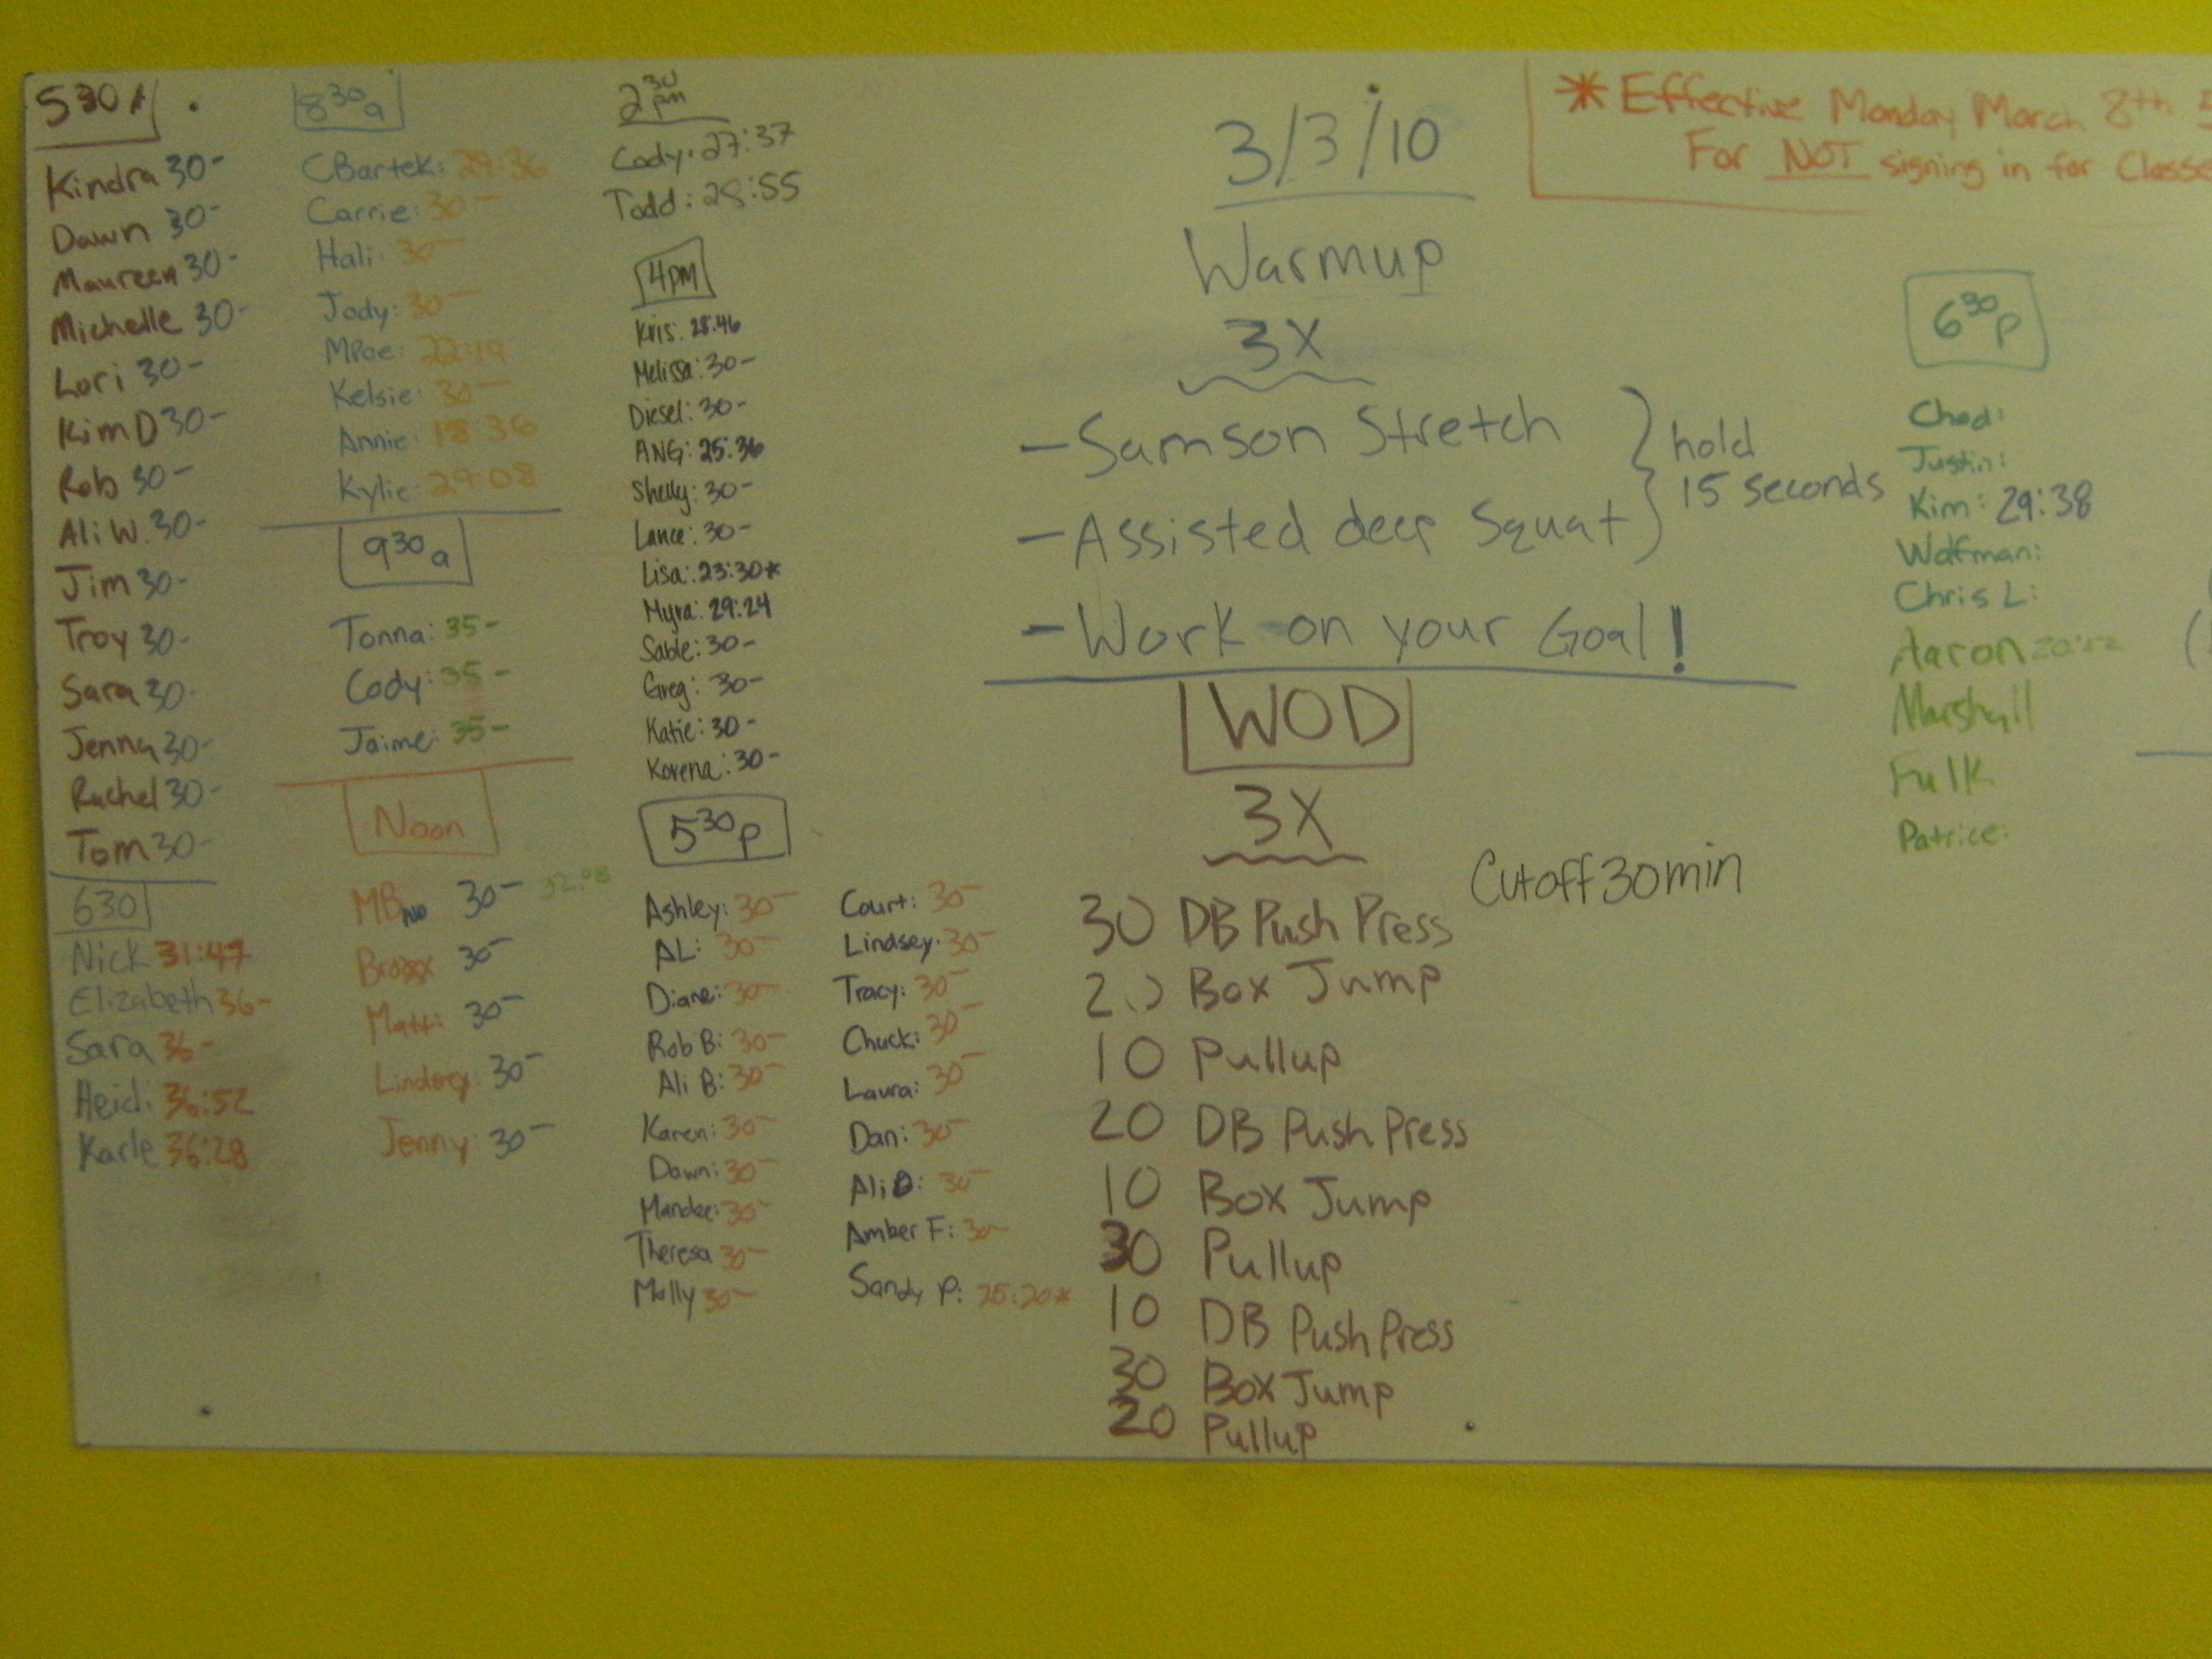 530A
Kindra 30-
Dawn 30-
Maureen 30-
Michelle 30-
Lori 30-
Kim D 30-
Rob 30-
Ali W. 30-
Jim 30-
Troy 30-
Sara 30-
Jenna 30-
Rachel 30-
Tom 30-
630
Nick 31:47
Elizabeth 36-
Sara 36-
Heidi 36:52
Karle 36:28
830a
CBartek: 29:36
Carrie: 30-
Hali: 30-
Jody: 30-
MPoe: 22:19
Kelsie: 30-
Annie: 18:36
Kylie: 29:08
930a
Tonna: 35-
Cody: 35-
Jaime: 35-
Noon
30-
30-
Matt: 30-
Lindsey: 30-
Jenny: 30-
230 pm
Cody: 27:37
Todd: 28:55
4pm
Kris: 28:46
Melissa: 30-
Diesel: 30-
ANG: 25:36
Shelly: 30-
Lance: 30-
Lisa: 23:30*
Myra: 29:24
Sable: 30-
Greg: 30-
Katie: 30-
Korena: 30-
530p
Ashley: 30-
AL: 30-
Diane: 30-
Rob B: 30-
Ali B: 30-
Karen: 30-
Dawn: 30-
Mandee: 30-
Theresa 30-
Molly 30-
Court: 30-
Lindsey: 30-
Tracy: 30-
Chuck: 30-
Laura: 30-
Dan: 30-
Ali D: 30-
Amber F: 30-
Sandy P: 25:20*
3/3/10
Warmup
3X
- Samson Stretch
- Assisted deep Squat
hold
15 seconds
- Work on your Goal!
WOD
3X
Cutoff 30min
30 DB Push Press
20 Box Jump
10 Pullup
20 DB Push Press
10 Box Jump
30 Pullup
10 DB Push Press
30 Box Jump
20 Pullup
* Effective Monday March 8th
For NOT signing in for Classe
630p
Chad:
Justin:
Kim: 29:38
Wolfman:
Chris L:
Aaron
Marshall
Fulk
Patrice: